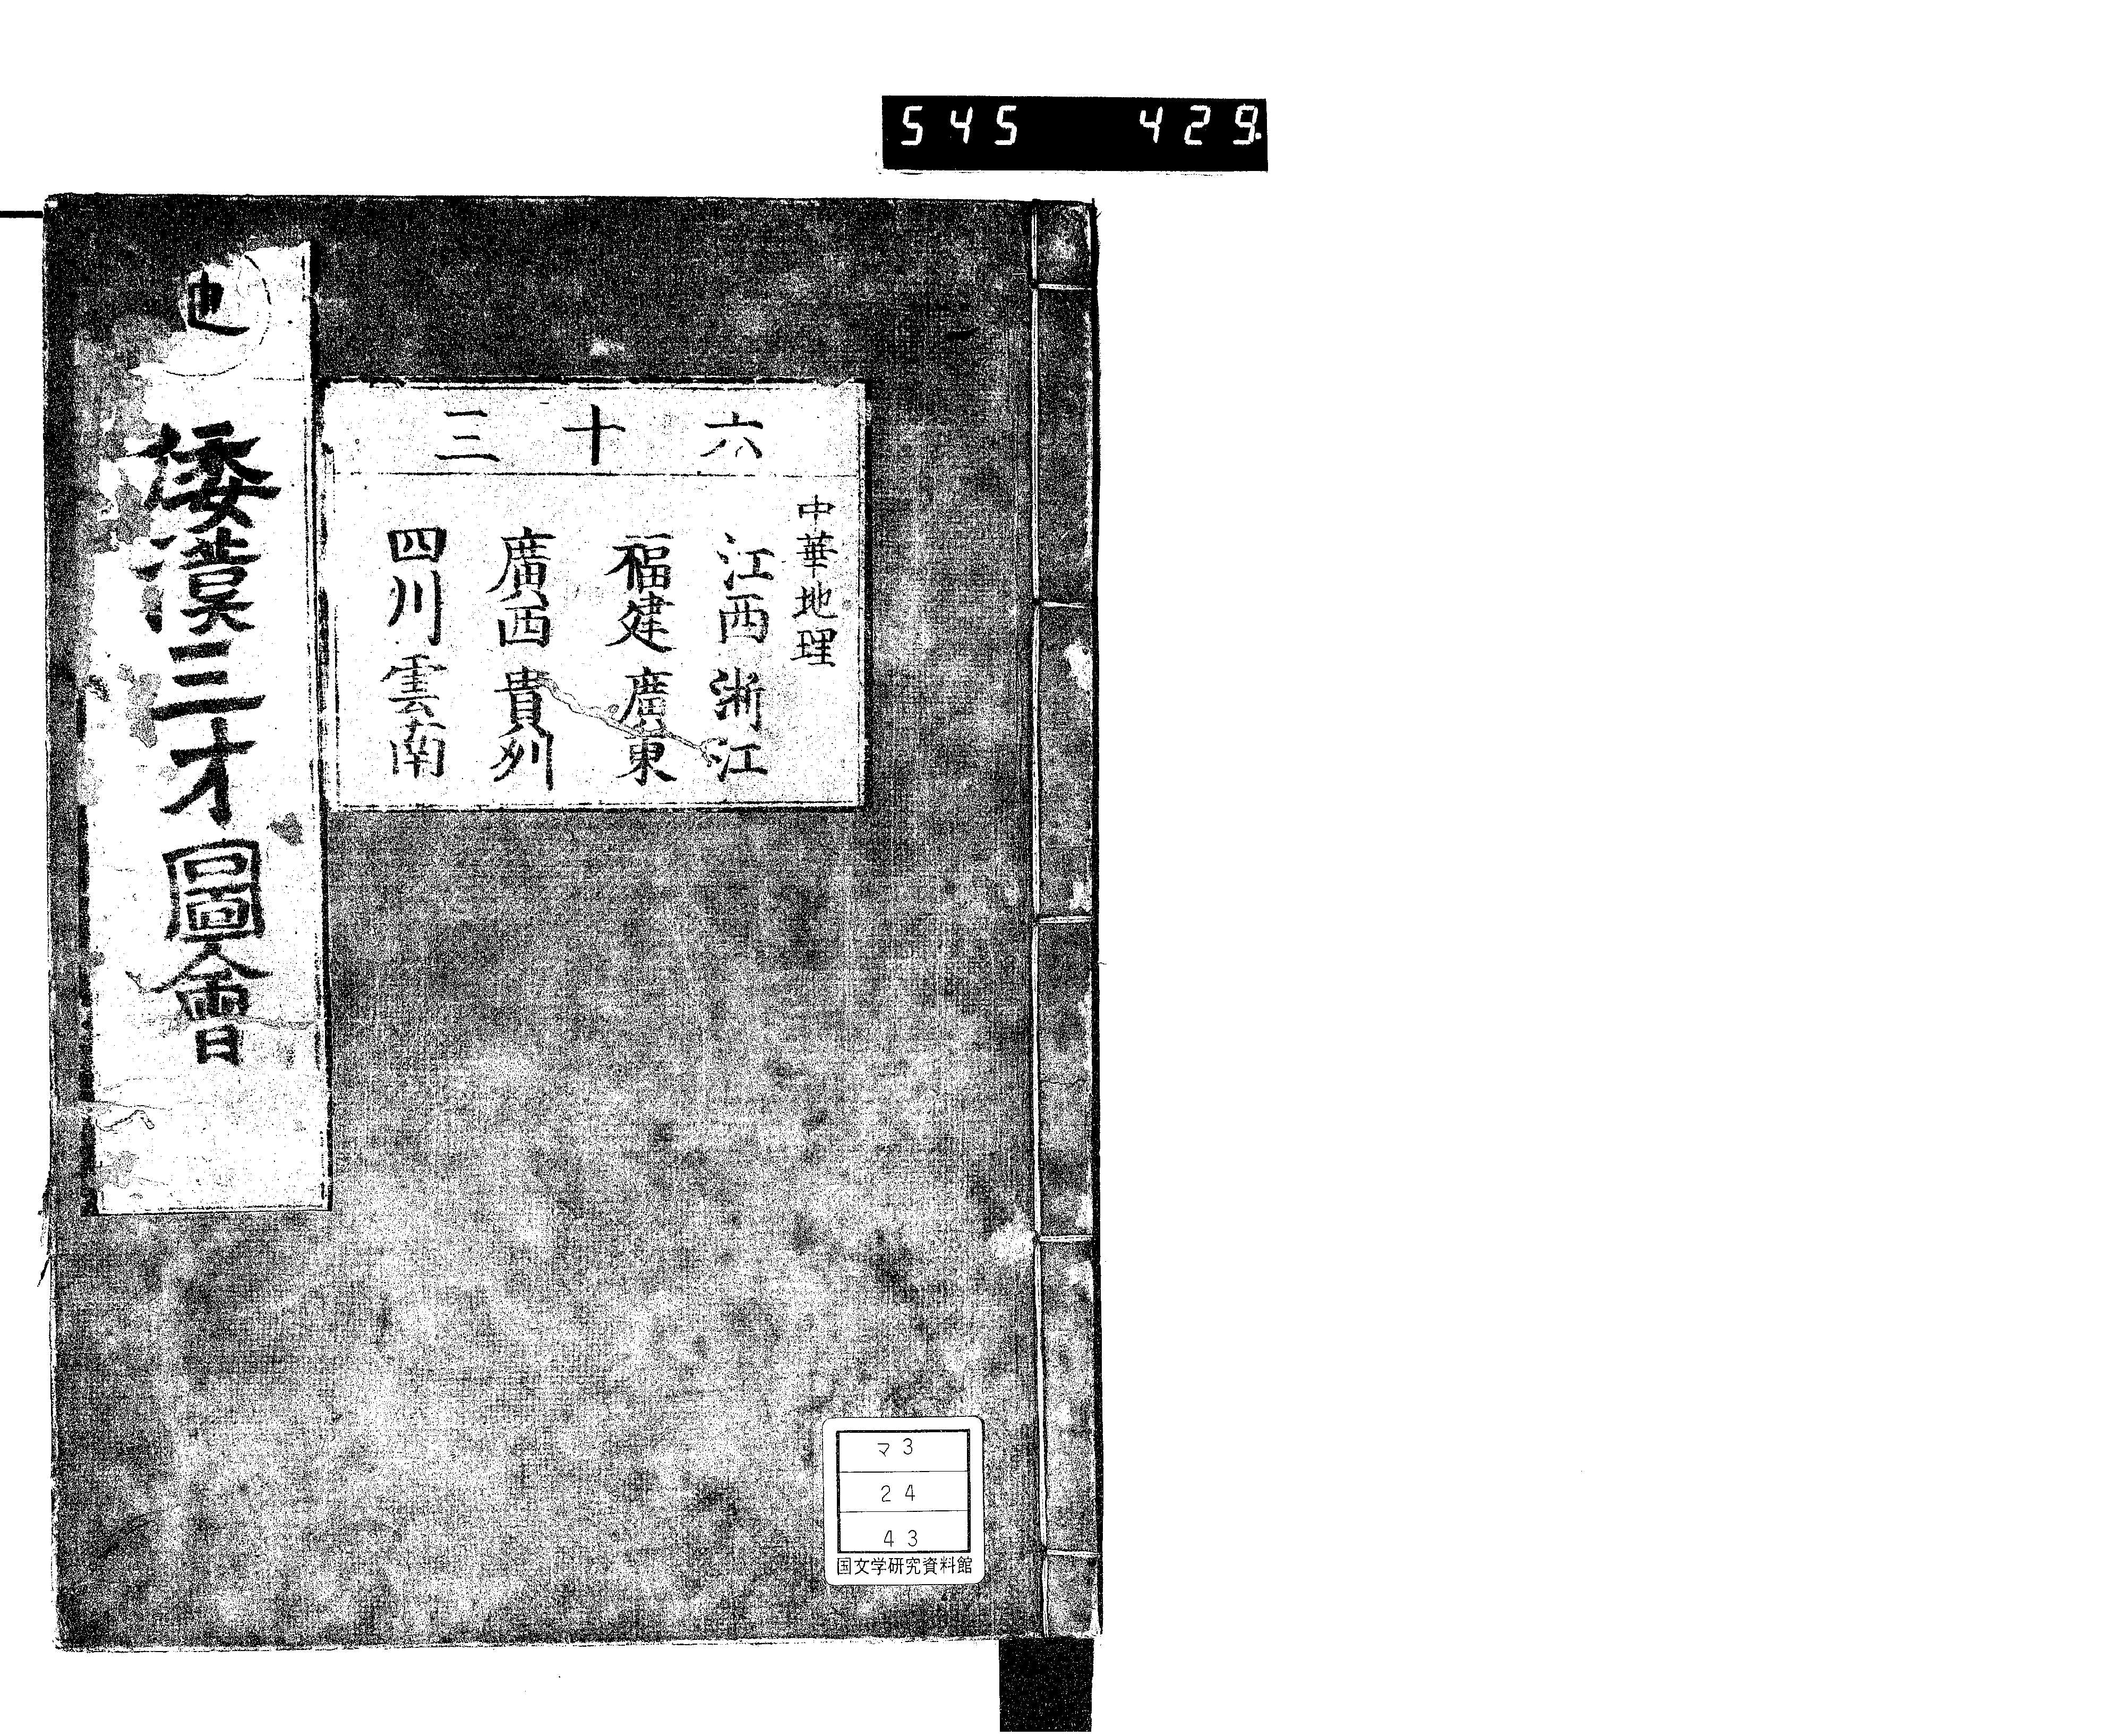 545 429
六十三
中華地理
江西 浙江
福建 廣東
廣西 貴州
四川 雲南
倭漢三才圖會
マ3
24
43
国文学研究資料館